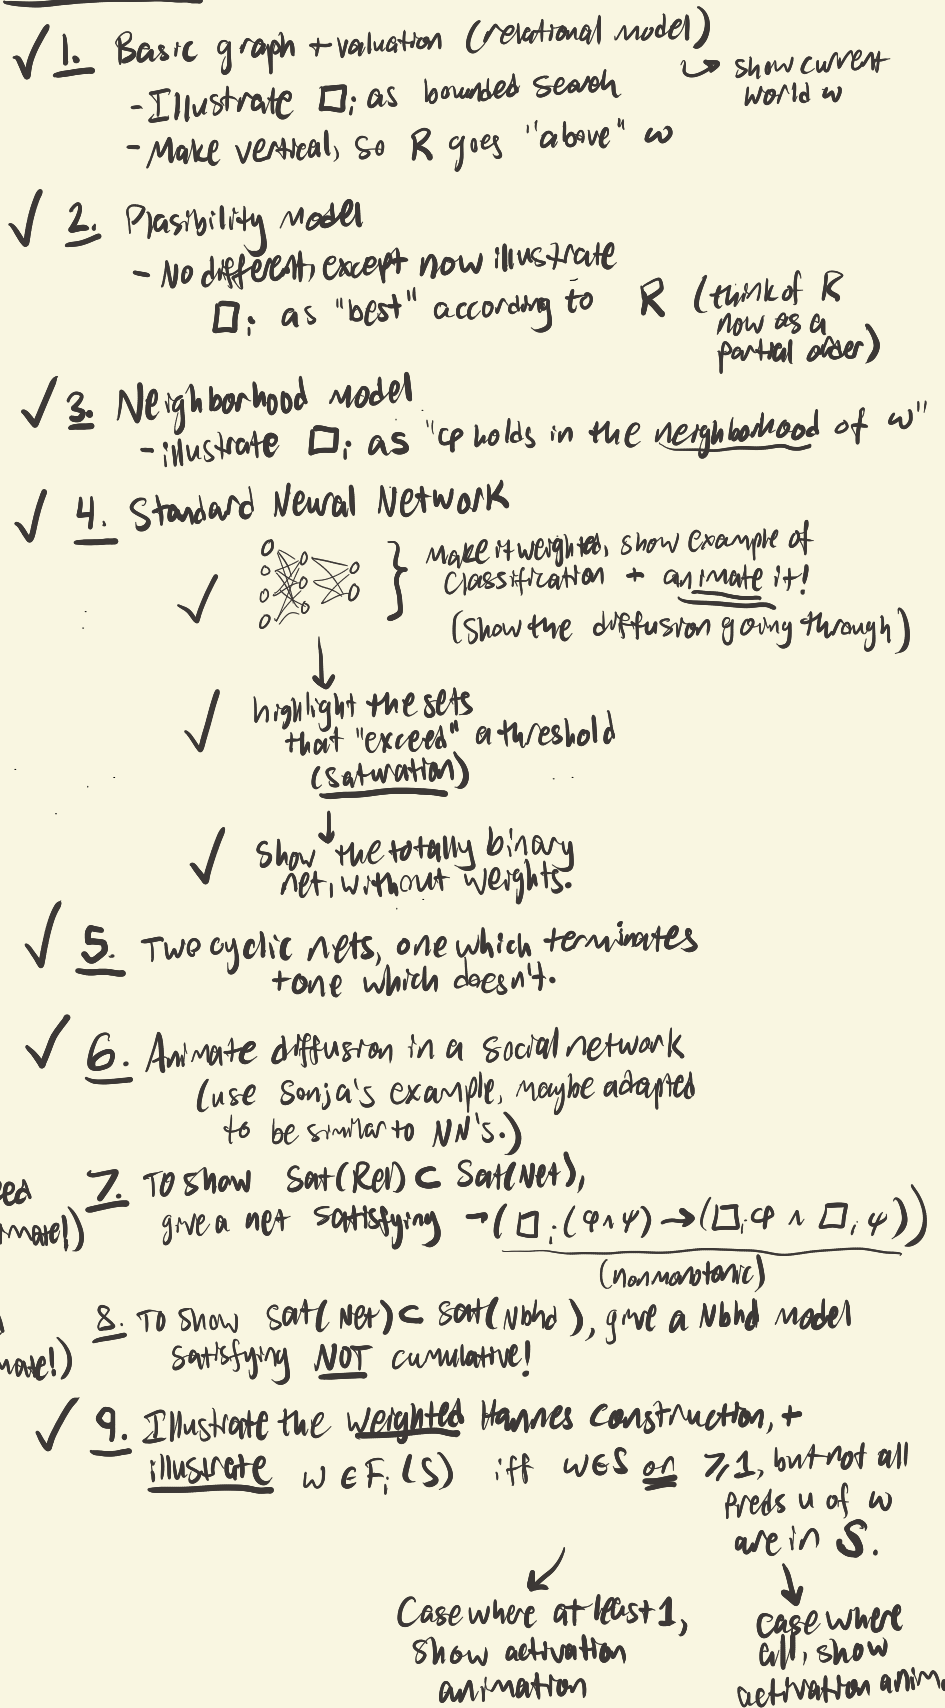 ✓ 1. Basic graph + valuation (relational model)
↪ show current
world w
- Illustrate □i as bounded search
- Make vertical, so R goes "above" w
✓ 2. Plasibility Model
- No different, except now illustrate
□i as "best" according to R (think of R
now as a
partial order)
✓ 3. Neighborhood model
- illustrate □i as "φ holds in the neighborhood of w"
✓ 4. Standard Neural Network
✓ } Make it weighted, show example of
classification + animate it!
(Show the diffusion going through)
↓
✓ highlight the sets
that "exceed" a threshold
(saturation)
↓
✓ Show the totally binary
net, without weights.
✓ 5. Two cyclic nets, one which terminates
+ one which doesn't.
✓ 6. Animate diffusion in a social network
(use Sonja's example, maybe adapted
to be similar to NN's.)
7. To show Sat(Rel) ⊂ Sat(Net),
give a net satisfying ¬(□i(φ∧ψ)→(□iφ ∧ □iψ))
(nonmonotonic)
8. To show Sat(Net) ⊂ Sat(Nbhd), give a Nbhd model
satisfying NOT cumulative!
✓ 9. Illustrate the weighted Hannes Construction, +
illustrate w ∈ Fi(S) iff w∈S or ≥1, but not all
preds u of w
are in S.
Case where at least 1,
show activation
animation
case where
all, show
activation anim